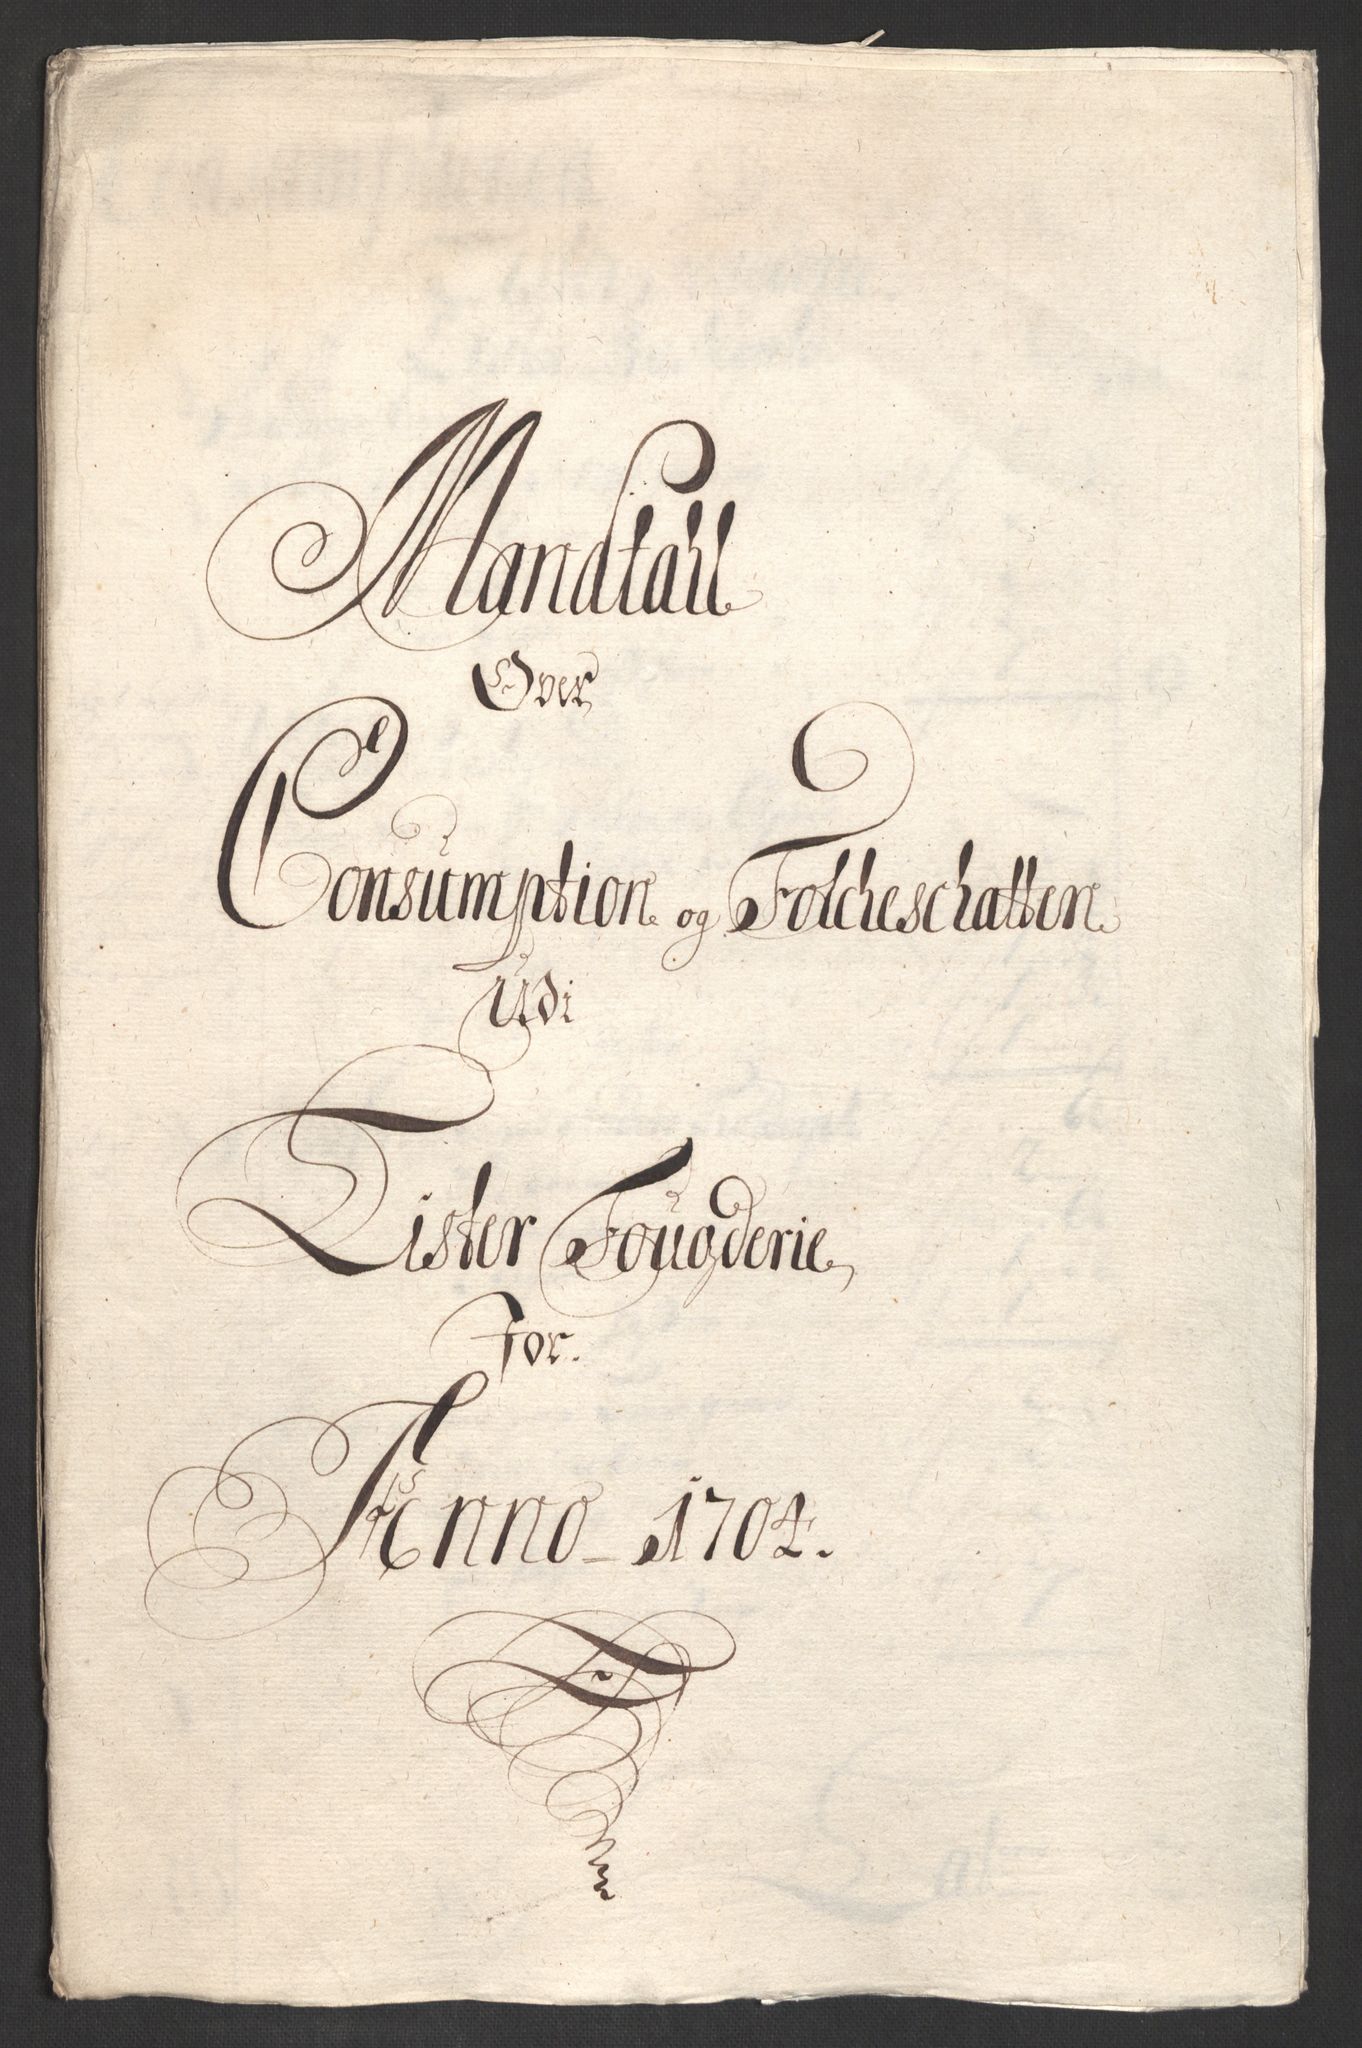 Mandtall
Over
Consumption og Folcheschatten
Udi
Lister Fougderie
For
Anno 1704.